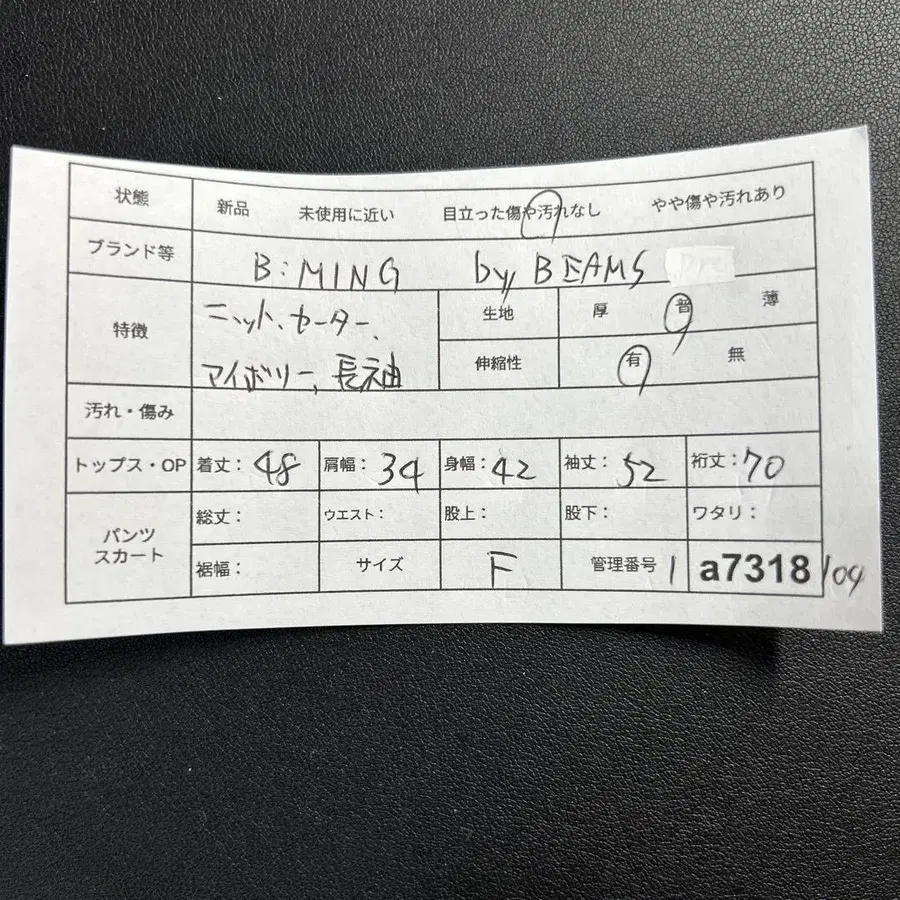 状態 新品 未使用に近い 目立った傷や汚れなし やや傷や汚れあり
ブランド等 B:MING by BEAMS
特徴 ニット、セーター、
アイボリー、長袖
生地 厚 普 薄
伸縮性 有 無
汚れ・傷み
トップス・OP 着丈：48 肩幅：34 身幅：42 袖丈：52 裄丈：70
パンツ
スカート
総丈： ウエスト： 股上： 股下： ワタリ：
裾幅： サイズ F 管理番号 1 a7318 109